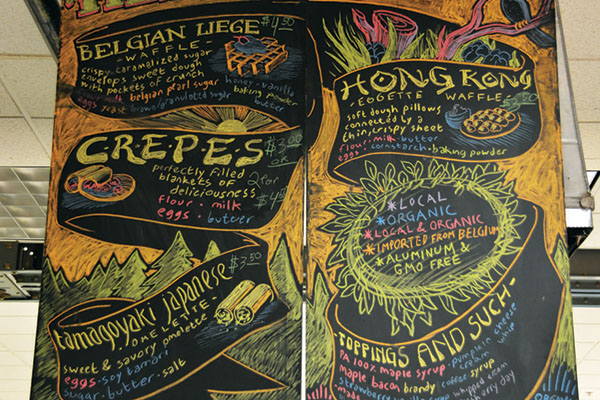 BELGIAN LIEGE $4.50
-WAFFLE-
crispy caramelized sugar
envelops sweet dough
with pockets of crunch
milk belgian pearl sugar
eggs yeast brown/granulated sugar
honey · vanilla
baking powder
butter
C·R·E·P·E·S $3.00
OR
2 for
perfectly filled
blankets of
deliciousness
flour · milk
eggs · butter
tamagoyaki japanese $3.50
-OMELETTE-
sweet & savory omelette
eggs · soy · tamari
sugar · butter · salt
HONG KONG
-EGGETTE WAFFLE-
soft dough pillows
connected by a
thin, crispy sheet
flour · milk · butter
eggs · cornstarch · baking powder
*LOCAL
*ORGANIC
*LOCAL & ORGANIC
*IMPORTED FROM BELGIUM
*ALUMINUM &
GMO FREE
-TOPPINGS AND SUCH-
PA 100% maple syrup · pumpkin cheese
cream
maple bacon brandy coffee syrup
strawberry
whipped cream
made
day